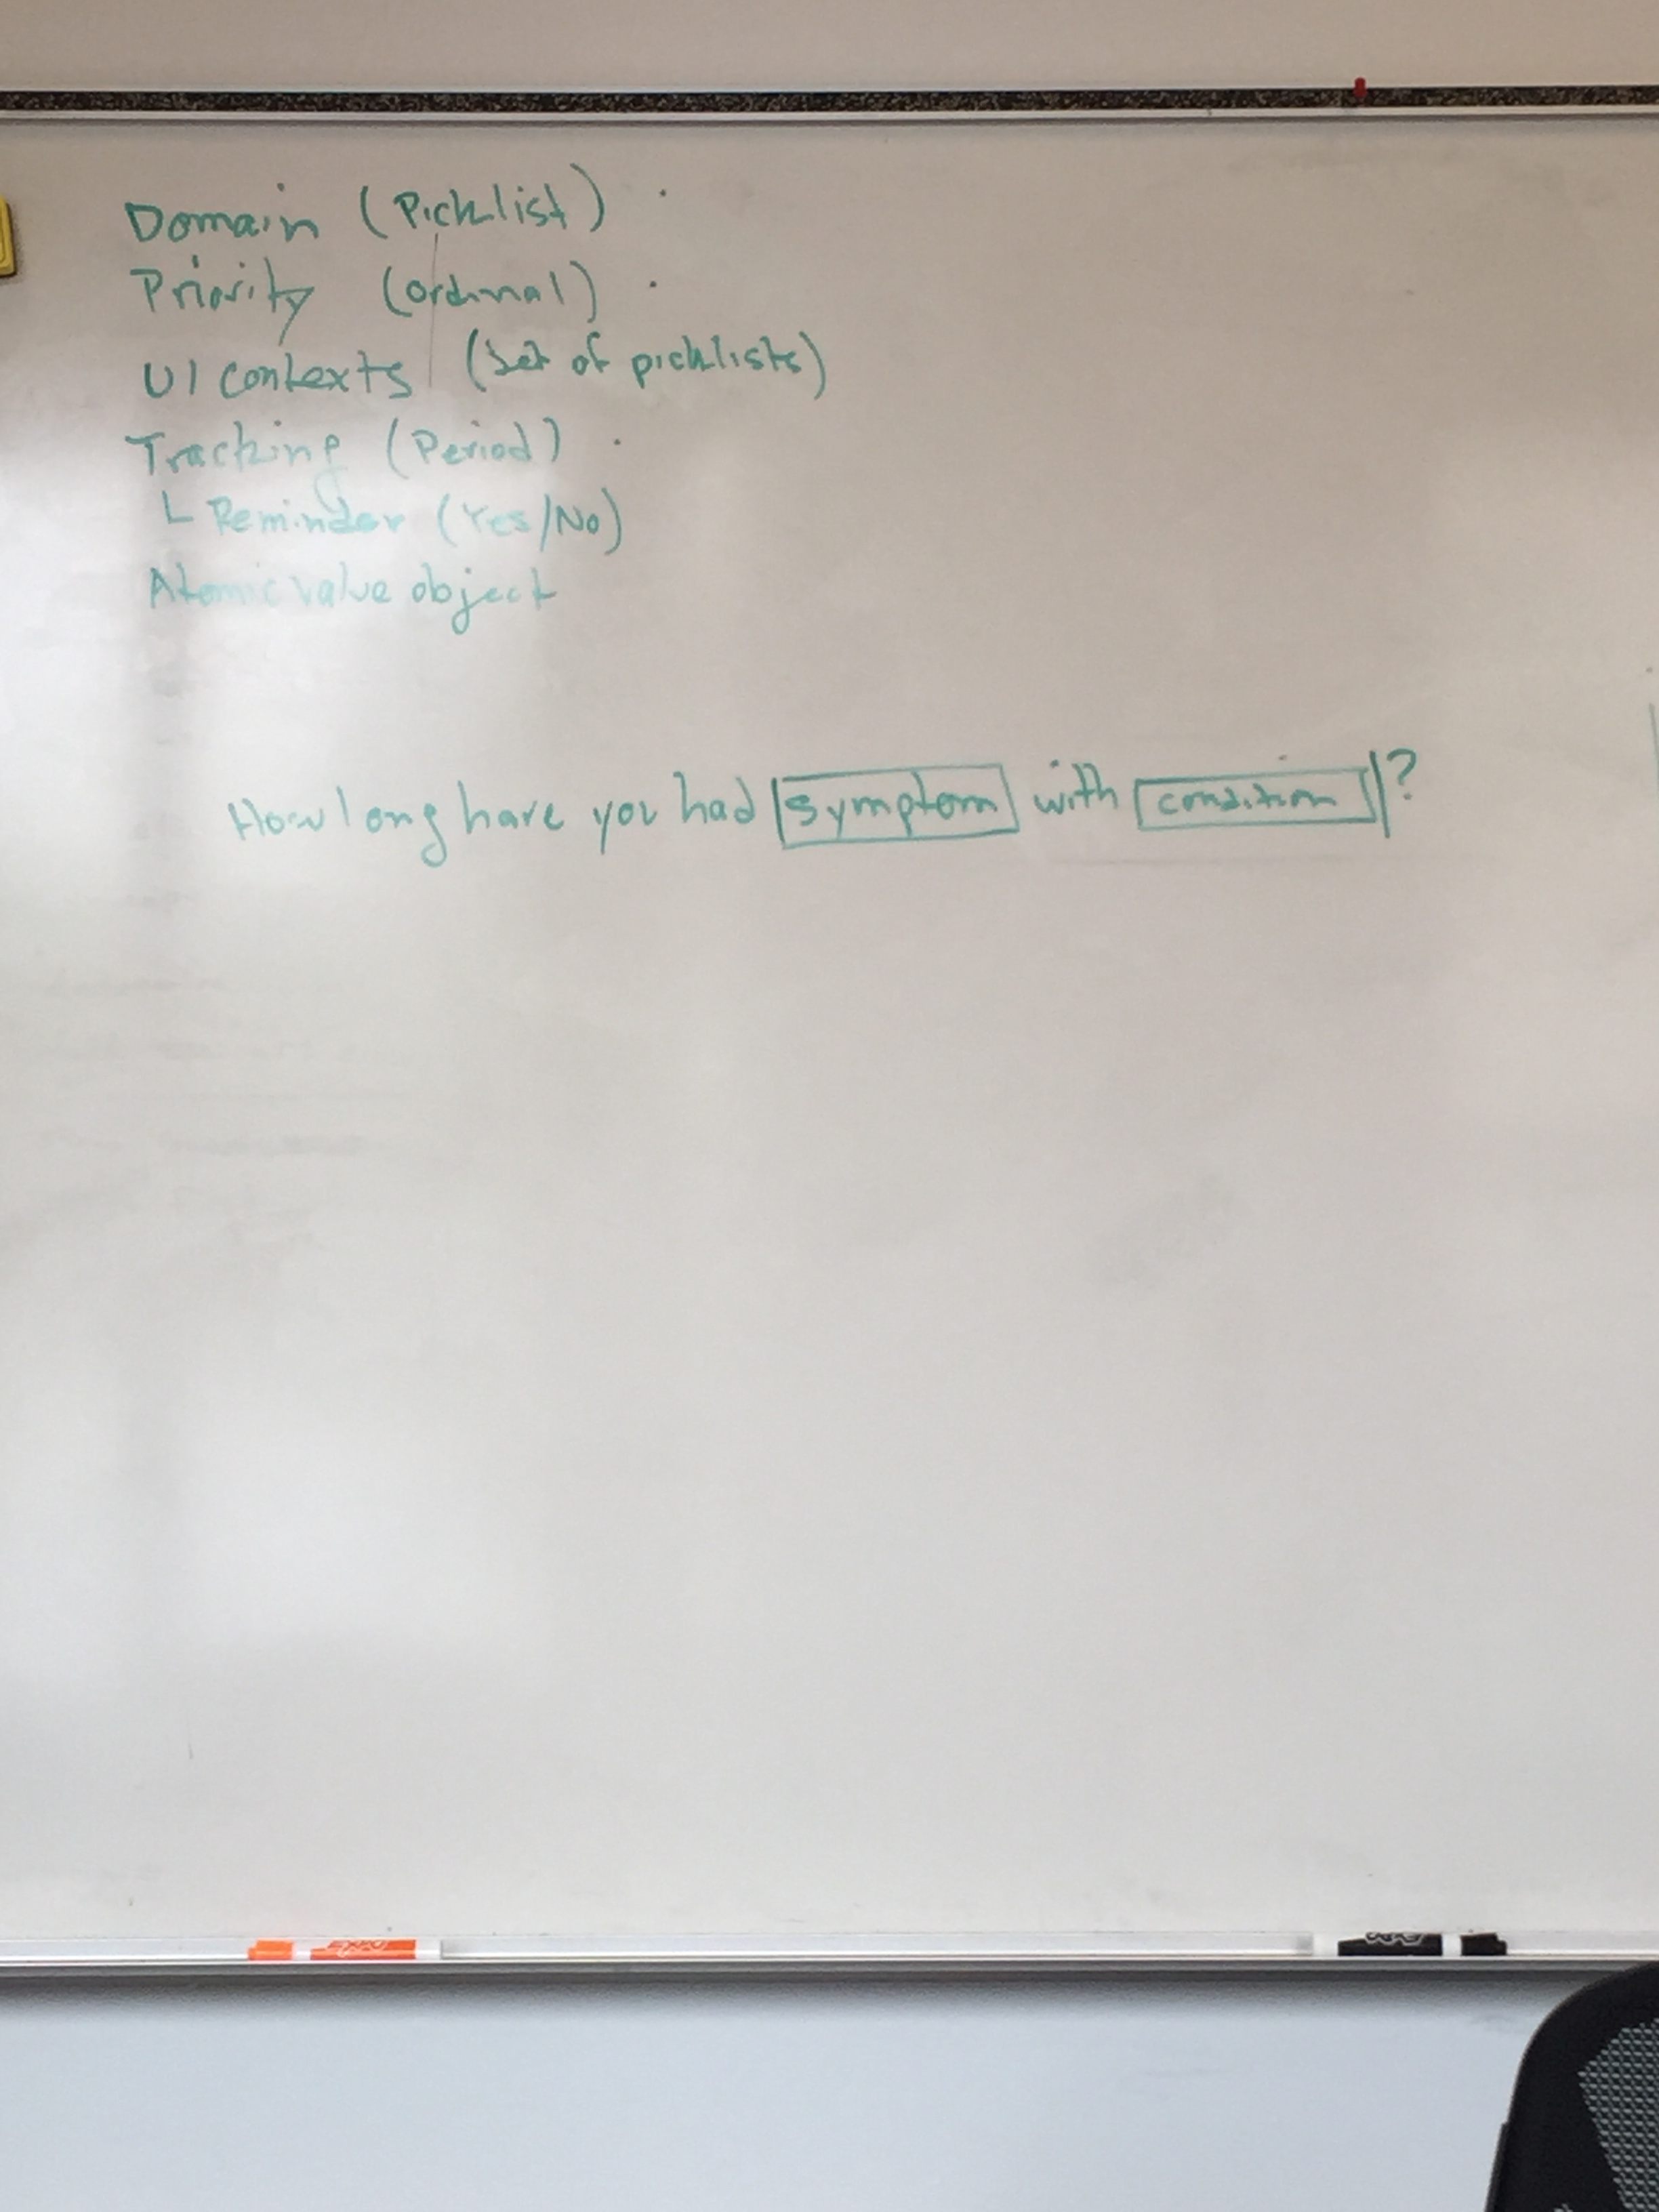 Domain (Picklist)
Priority (ordinal)
UI contexts (set of picklists)
Tracking (Period)
└ Reminder (Yes/No)
Atomic value object
How long have you had symptom with condition ?
EXPO